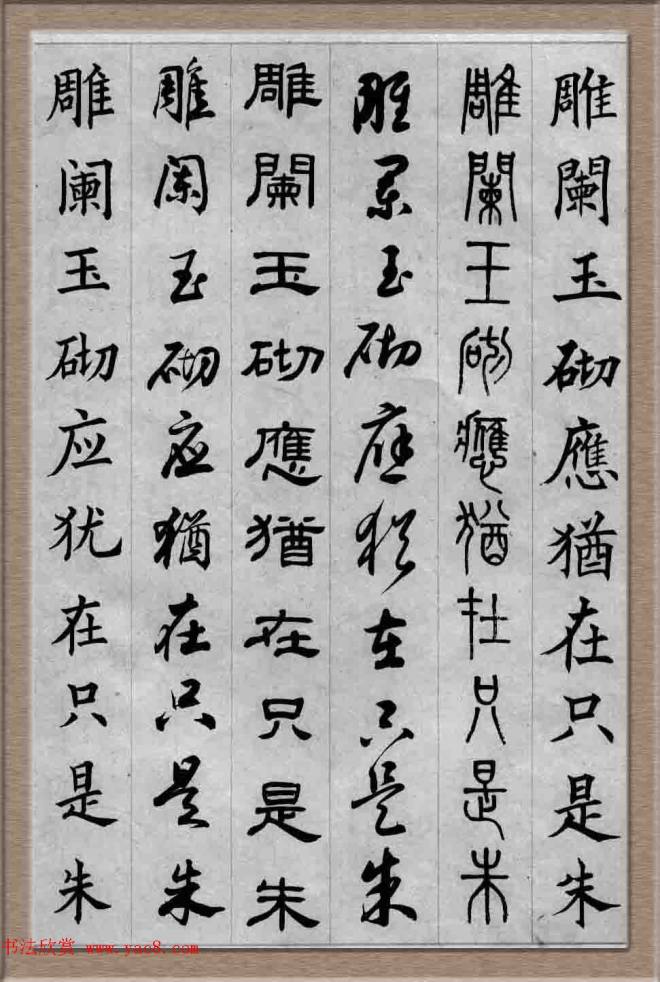 雕闌玉砌應猶在只是朱
雕闌玉砌應猶在只是朱
雕闌玉砌應猶在只是朱
雕闌玉砌應猶在只是朱
雕阑玉砌应猶在只是朱
雕阑玉砌应犹在只是朱
书法欣赏 www.yac8.com